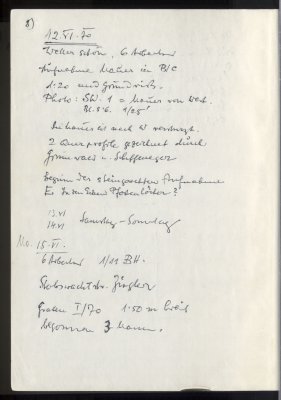 8)
12.VI.70
Wetter schön, 6 Arbeiter
Aufnahme Mauer in B/C
1:20 und Grundriss.
Photo: SW. 1 = Mauer von West.
Bl. 5.6. 1/25"
Die Mauer ist nach W verstürzt.
2 Querprofile gezeichnet durch
Grunewald u.
Beginn der steingerechten Aufnahme
Pfostenlöcher?
13.VI
14.VI Samstag-Sonntag
Mo. 15.VI.
6 Arbeiter 1/11 BH.
Graben I/70 1.50 m breit
begonnen 3 Mann.